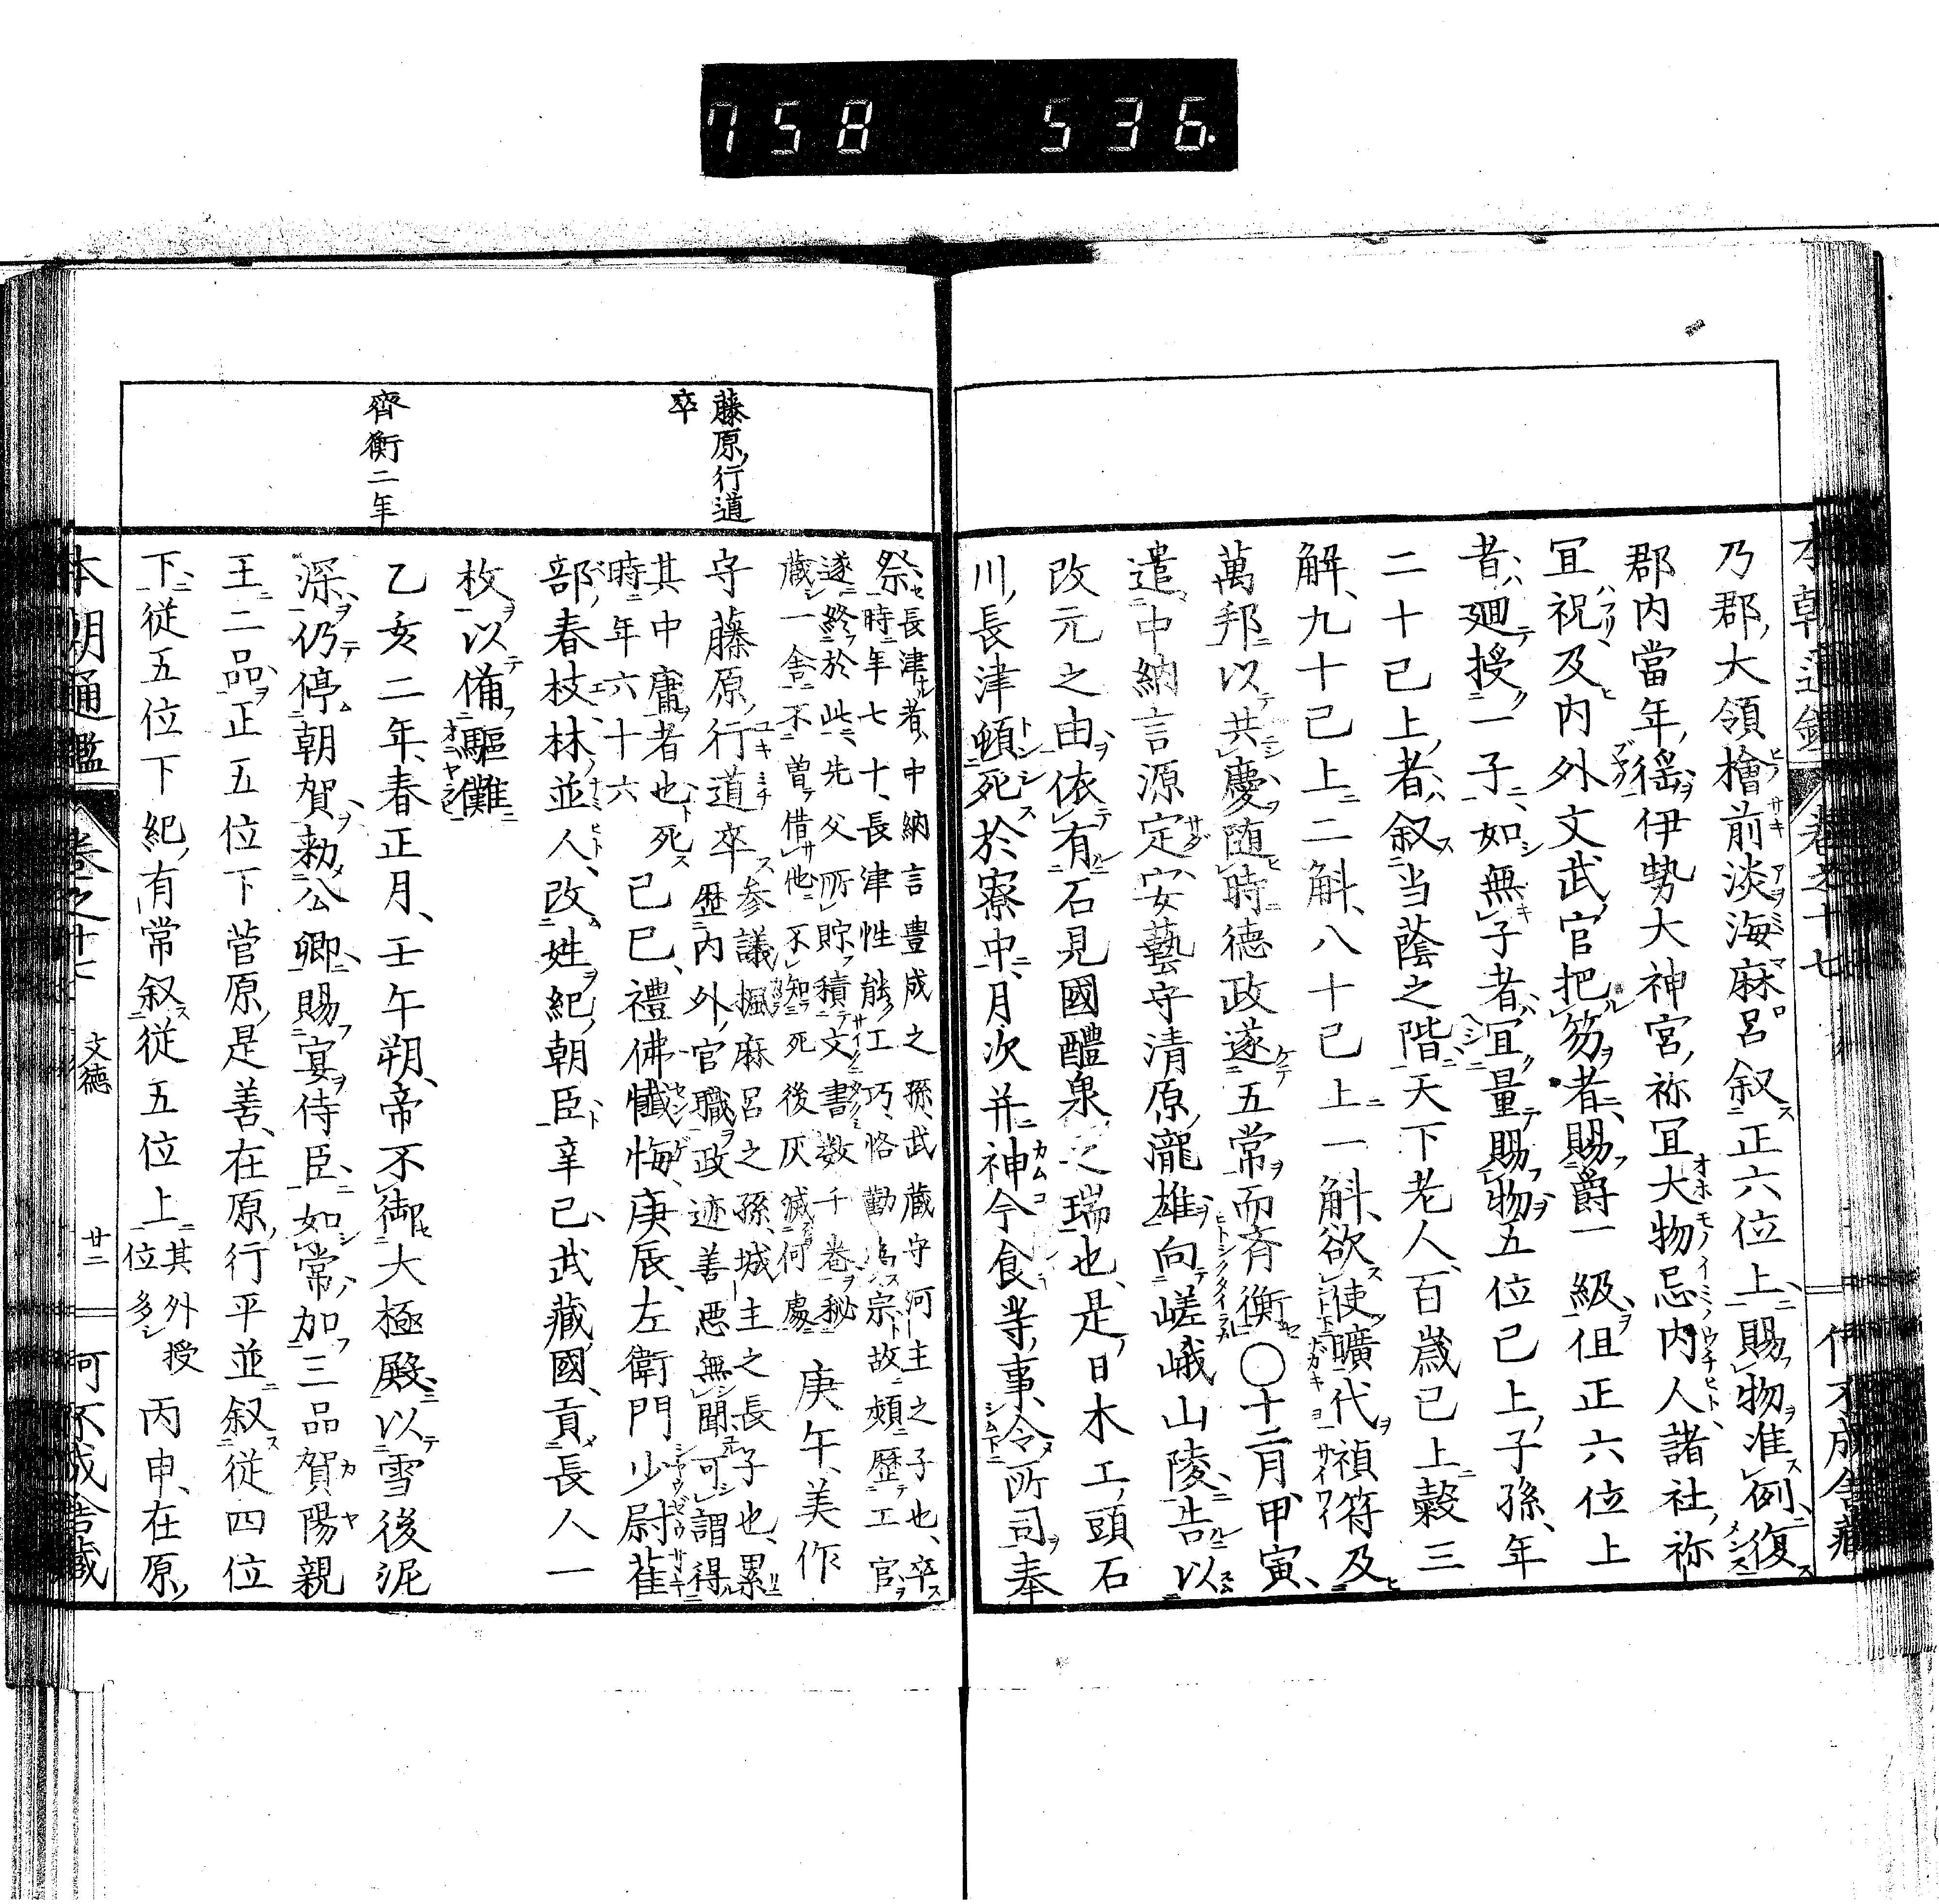 758 536.
本朝通鑑 卷之十七
竹不成舎藏
乃郡大領檜前淡海麻呂叙正六位上賜物准例復
郡内當年徭伊勢大神宮祢冝大物忌内人諸社祢
冝祝及内外文武官把笏者賜爵一級但正六位上
者廻授一子如無子者冝量賜物五位已上子孫年
二十已上者叙当蔭之階天下老人百歳已上穀三
斛九十已上二斛八十已上一斛欲使曠代禎符及
萬邦以共慶随時德政遂五常而斉衡〇十二月甲寅
遣中納言源定安藝守清原瀧雄向嵯峨山陵告以
改元之由依有石見國醴泉之瑞也是日木工頭石
川長津頓死於寮中月次并神今食等事令所司奉
藤原行道
卒
齊衡二年
祭長津者中納言豊成之孫武蔵守河主之子也卒
時年七十長津性能工巧恪勤為宗故頻歴工官
遂終於此先父所貯積文書数千卷秘
蔵一舎不曽借他不知死後仄滅何處
庚午美作
守藤原行道卒
参議楓麻呂之孫城主之長子也累
歴内外官職政迹善悪無聞可謂得
其中庸者也死
時年六十六
己巳禮佛懺悔庚辰左衛門少尉雀
部春枝林並人改姓紀朝臣辛己武藏國貢長人一
枚以備驅儺
乙亥二年春正月壬午朔帝不御大極殿以雪後泥
深仍停朝賀勅公卿賜宴侍臣如常加三品賀陽親
王二品正五位下菅原是善在原行平並叙従四位
下従五位下紀有常叙従五位上
其外授
位多
丙申在原
本朝通鑑 卷之十七 文德 廿二